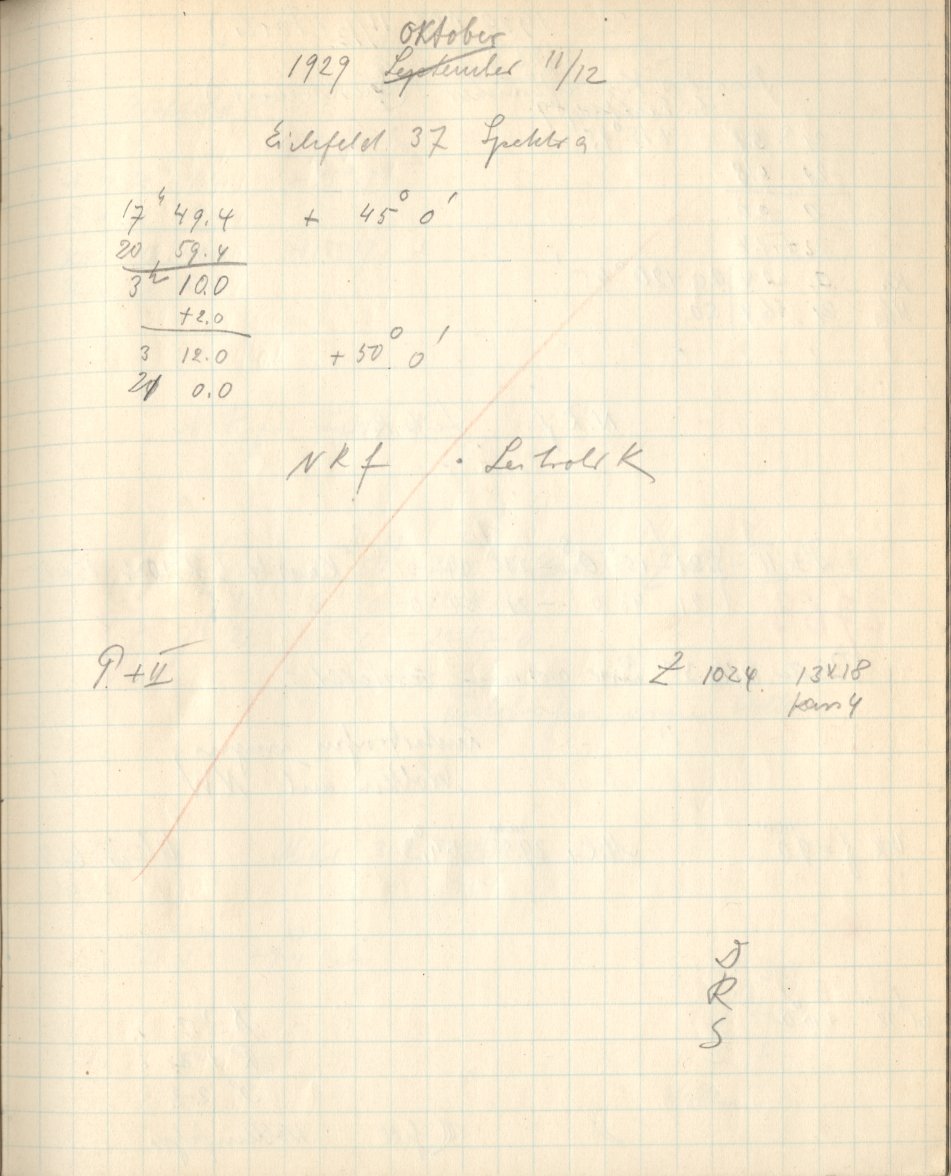 Oktober
1929 September 11/12
Eichfeld 37 Spektra
17h 49.4 + 45° 0'
20 59.4
3h 10.0
+2.0
3 12.0 + 50° 0'
21 0.0
NKf · K
P. + II Z 1024 13x18
Kass 4
D
R
S